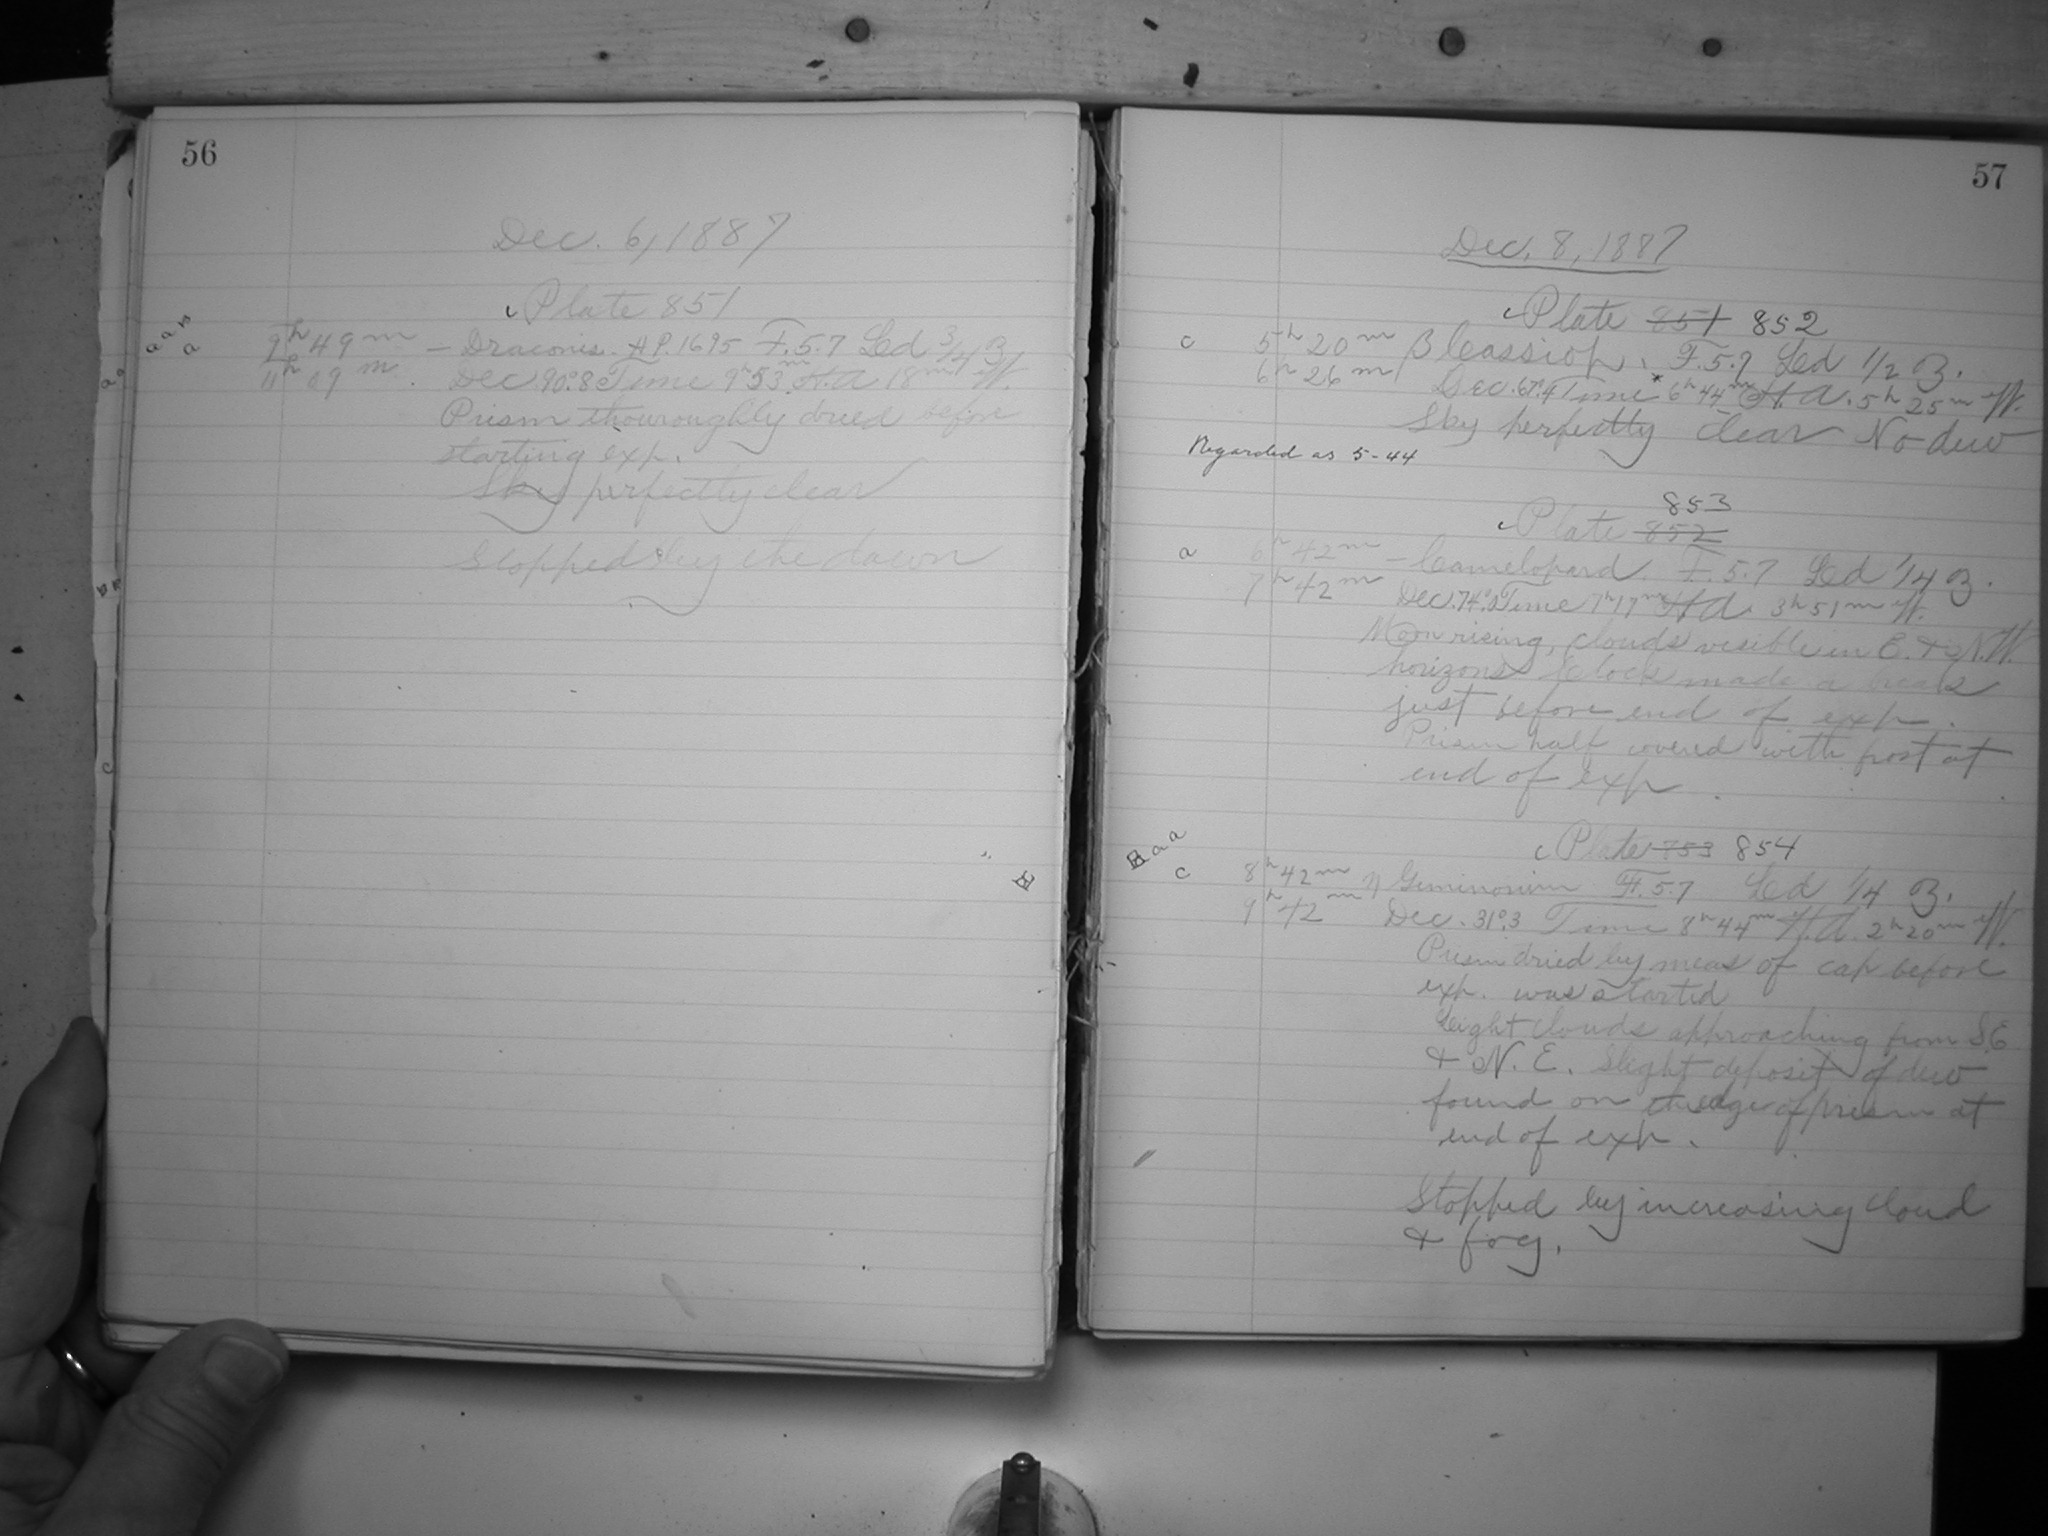 56
Dec. 6, 1887
Plate 851
9h 49m — Draconis. H.P. 1695 F. 5.7 Led 3/4 B.
11h 09m Dec 90°.8 Time 9h 53m H.A 18m W.
Prism thouroughly dried before
starting exp.
Sky perfectly clear
Stopped by the dawn
57
Dec. 8, 1887
Plate 851 852
c 5h 20m β Cassiop. F. 5.7 Led 1/2 B.
6h 26m Dec. 67°.4 Time * 6h 44m H.A. 5h 25m W.
Sky perfectly clear No dew
Regarded as 5-44
853
Plate 852
a 6h 42m — Camelopard. F. 5.7 Led 1/4 B.
7h 42m Dec. 74°. Time 7h 17m H.A. 3h 51m W.
Moon rising, clouds visible in E. & N.W.
horizons Clock made a break
just before end of exp.
Prism half covered with frost at
end of exp
Plate 853 854
c 8h 42m η Geminorium F. 5.7 Led 1/4 B.
9h 42m Dec. 31°.3 Time 8h 44m H.A. 2h 20m W.
Prism dried by meas of cap before
exp. was started
Light clouds approaching from S.E
& N. E. Slight deposit of dew
found on the edge of prism at
end of exp.
Stopped by increasing cloud
& fog.